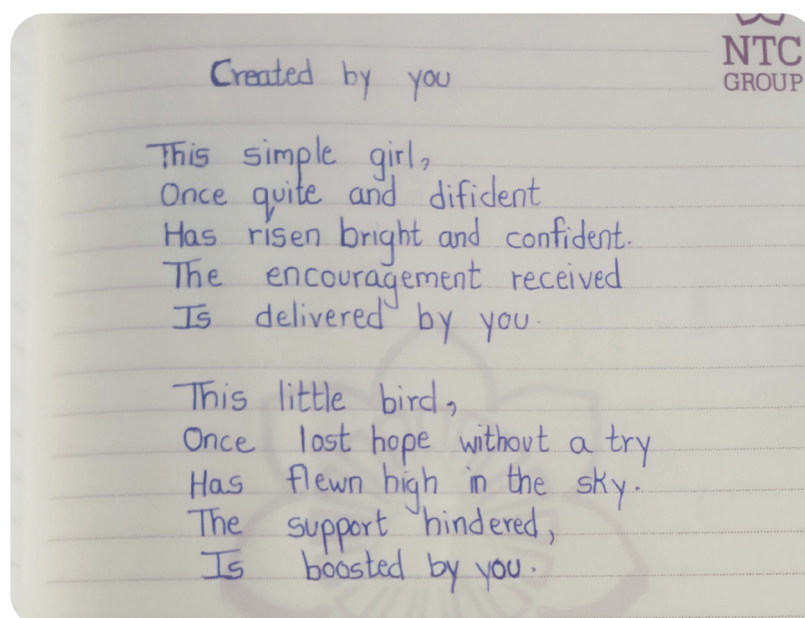 NTC
GROUP
Created by you
This simple girl,
Once quite and difident
Has risen bright and confident.
The encouragement received
Is delivered by you.
This little bird,
Once lost hope without a try
Has flewn high in the sky.
The support hindered,
Is boosted by you.